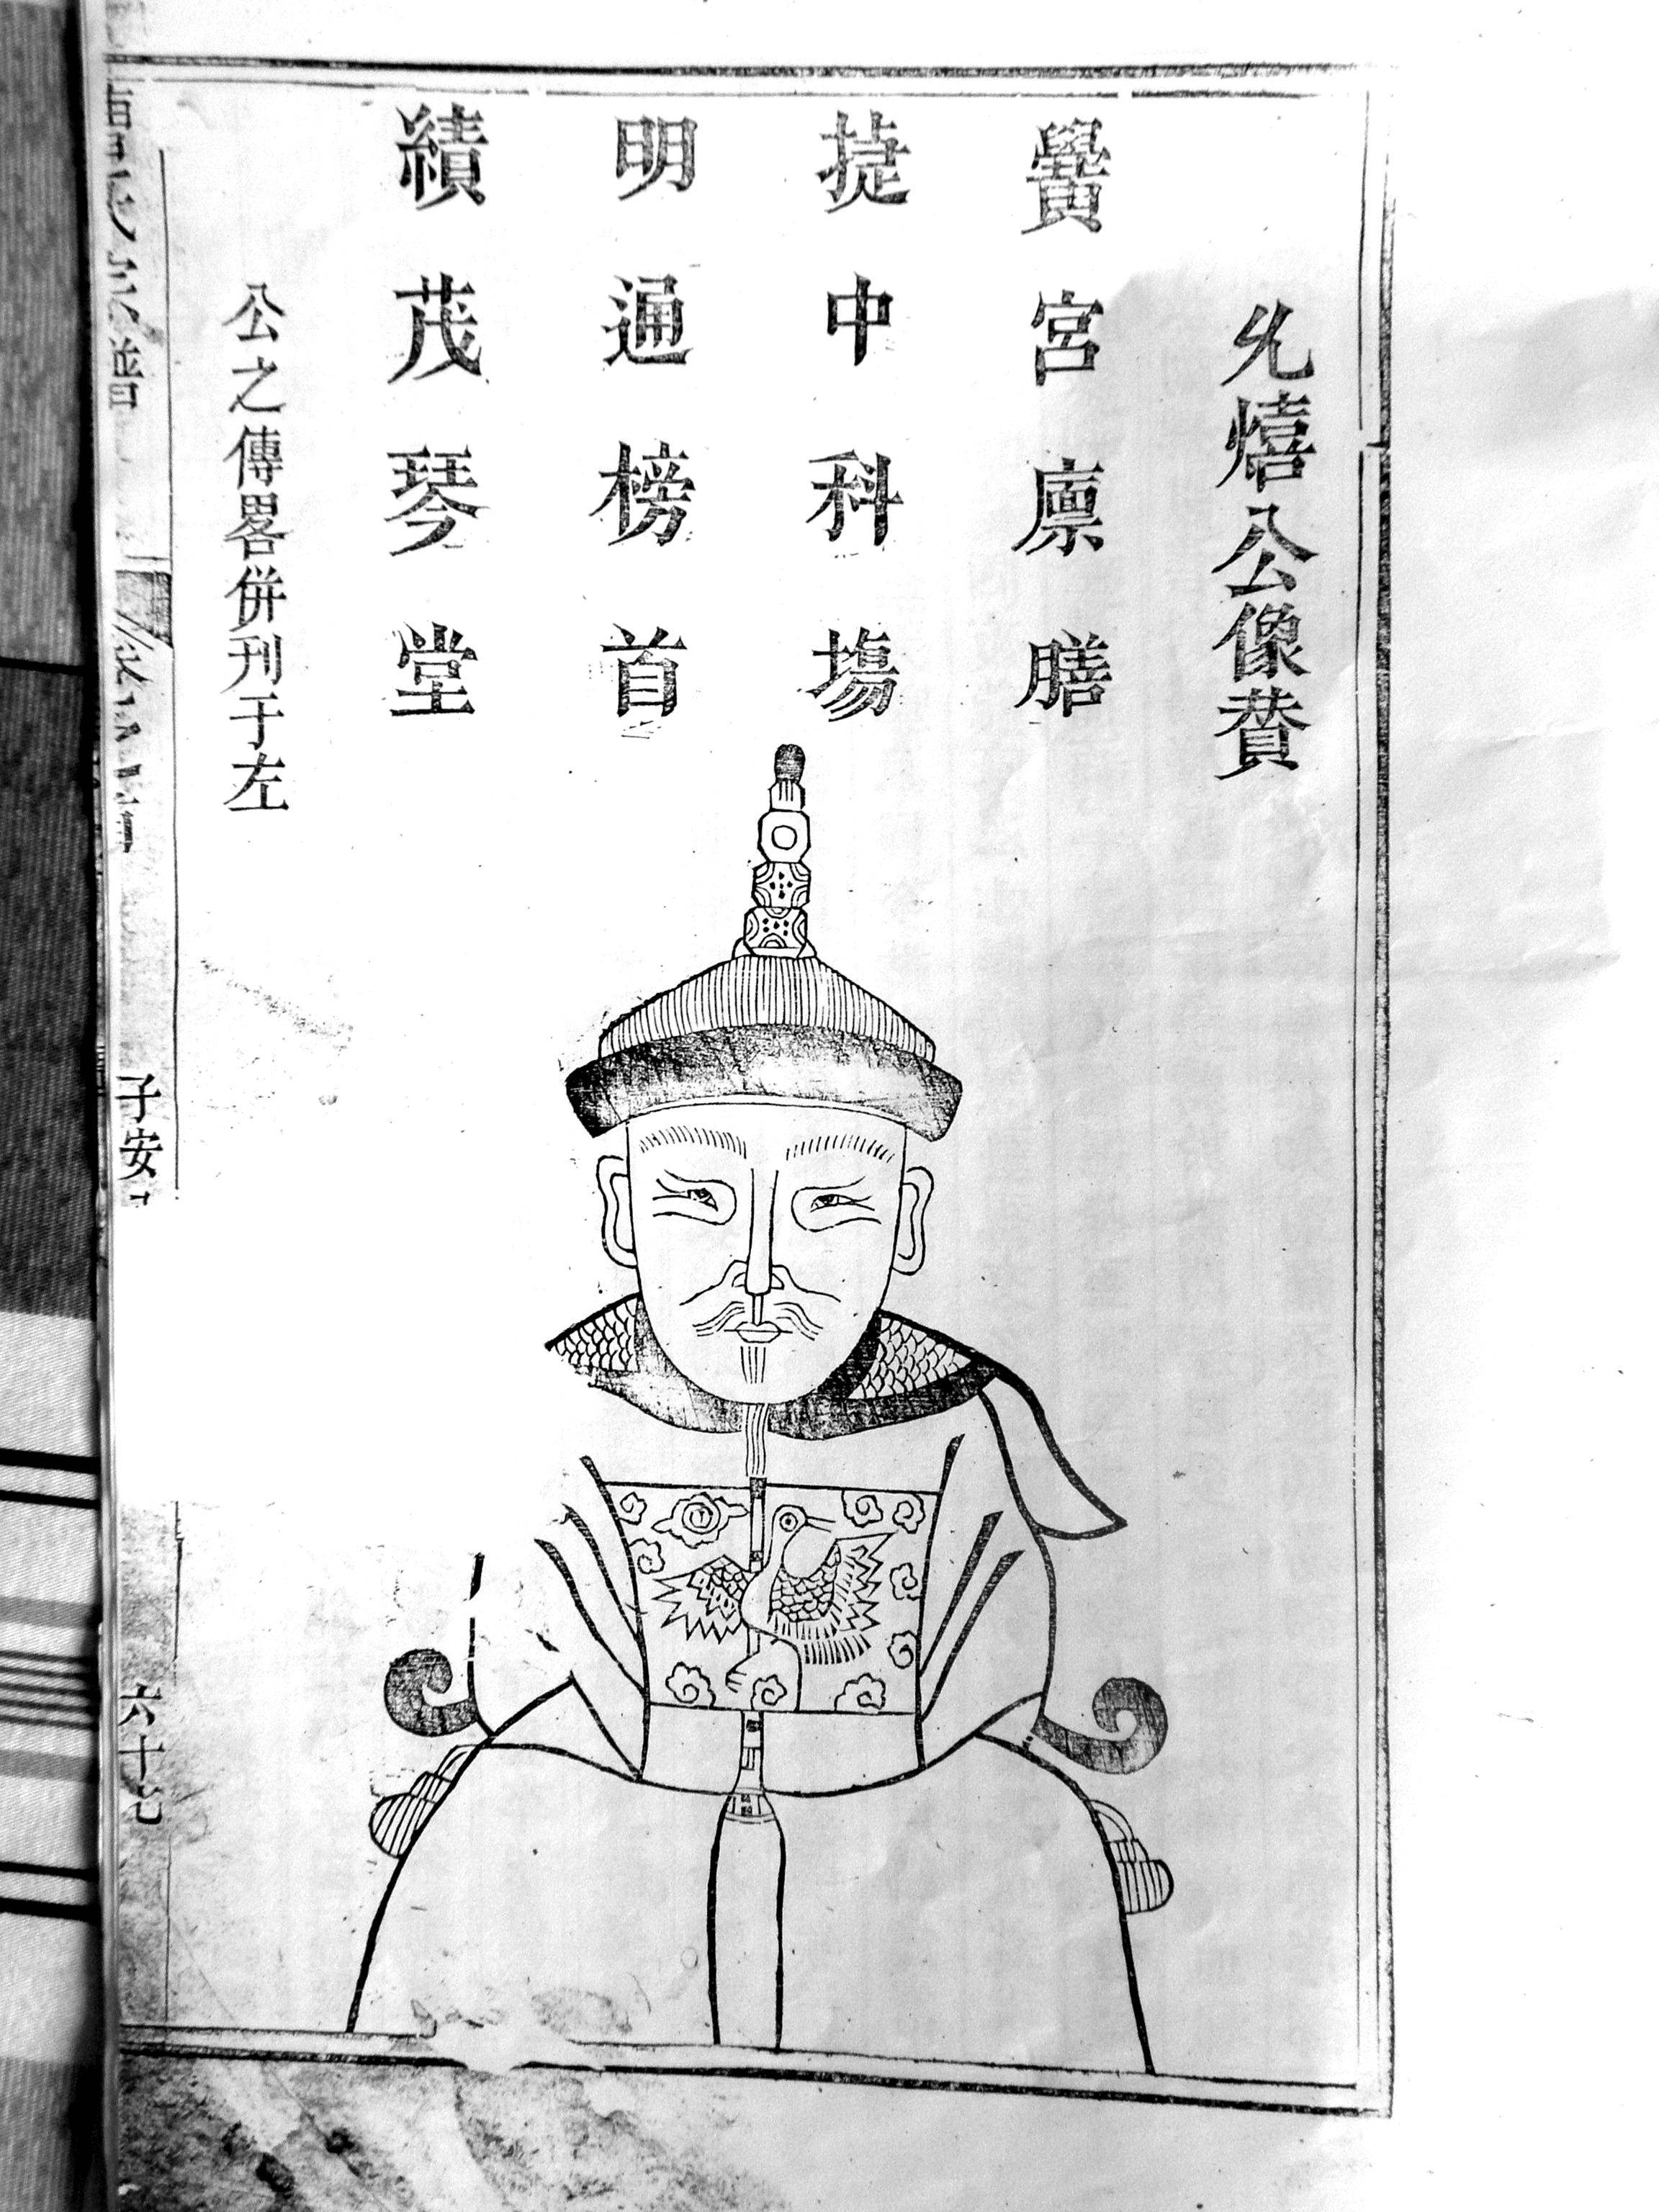 允熺公像賛
黌宮廪膳
捷中科塲
明通榜首
績茂琴堂
公之傳畧併刊于左
子安
六十七